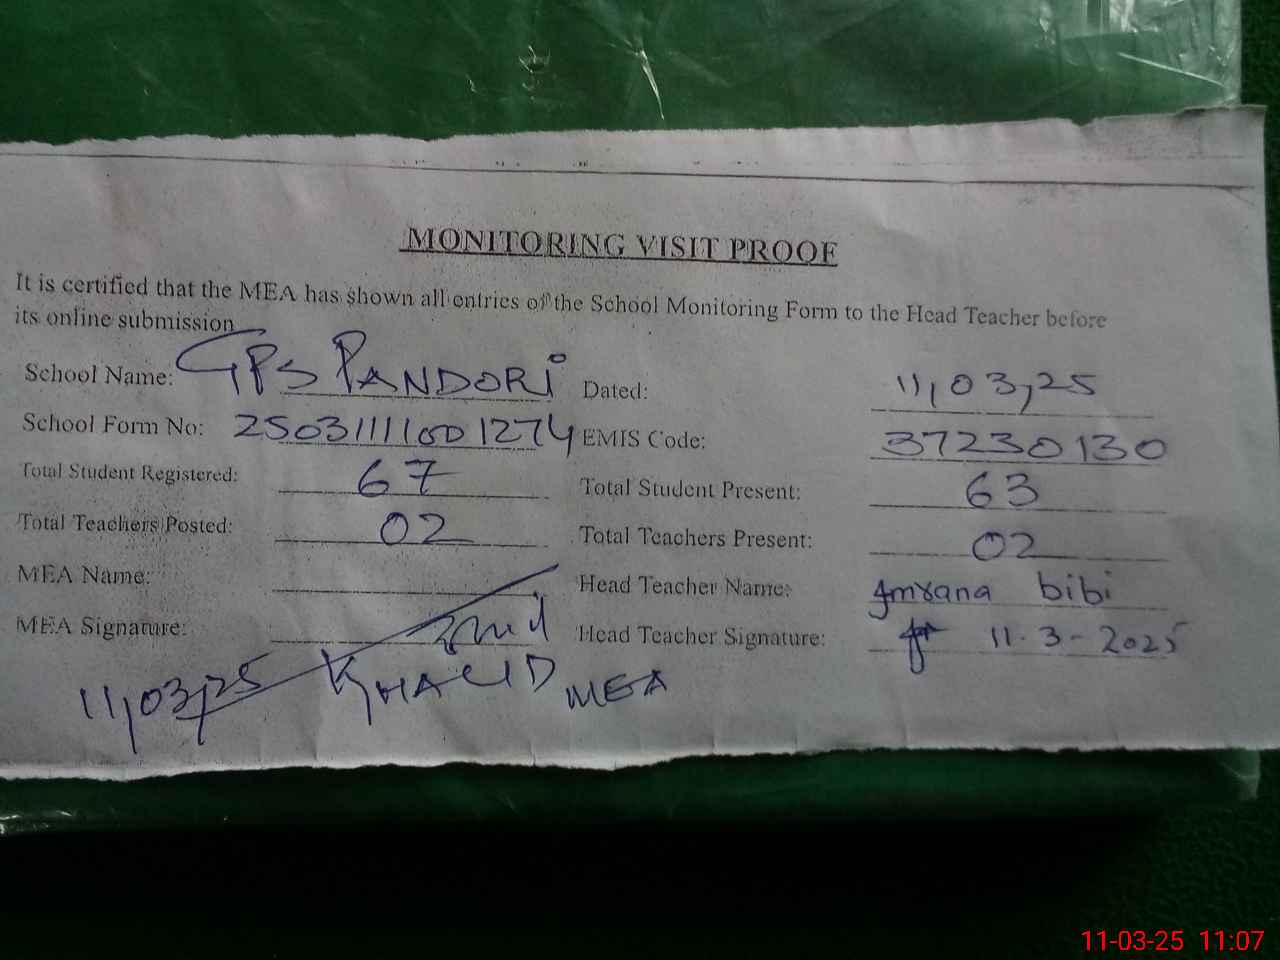 MONITORING VISIT PROOF
It is certified that the MEA has shown all entries of the School Monitoring Form to the Head Teacher before
its online submission
School Name: GPS PANDORI Dated: 11,03,25
School Form No: 25031111001274 EMIS Code: 37230130
Total Student Registered: 67 Total Student Present: 63
Total Teachers Posted: 02 Total Teachers Present: 02
MEA Name: Head Teacher Name: Imrana bibi
MEA Signature: Head Teacher Signature: 11.3-2025
11,03,25 KHALID MEA
11-03-25 11:07